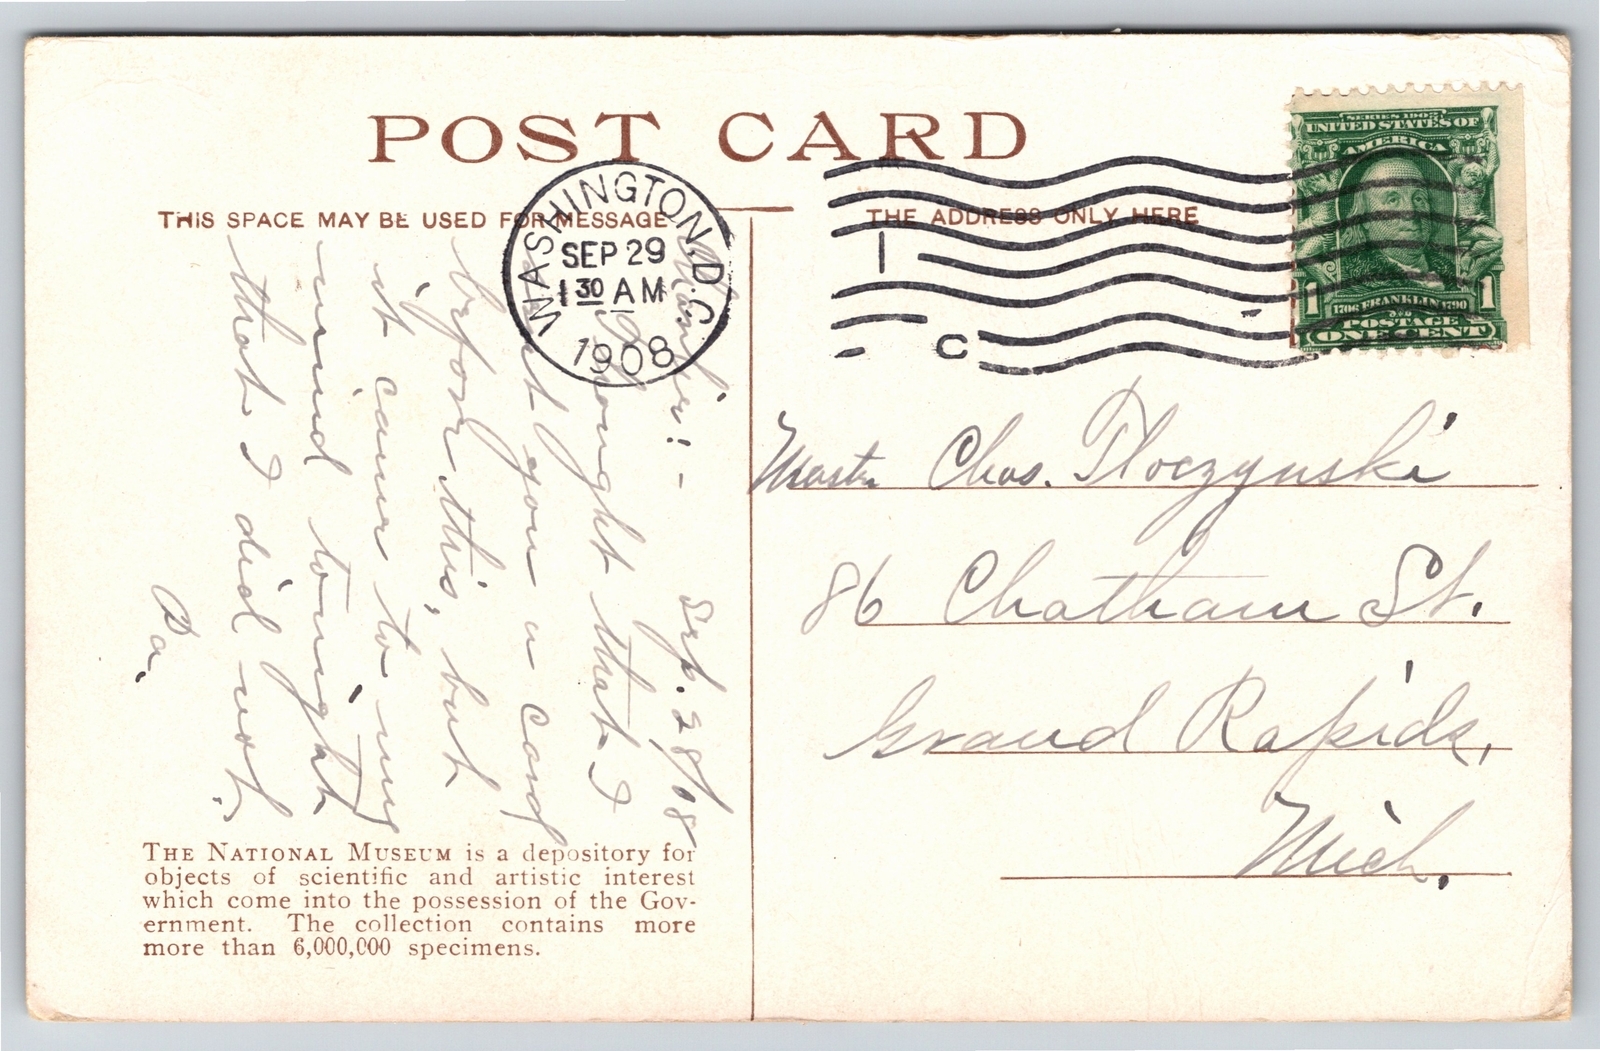 POST CARD
THIS SPACE MAY BE USED FOR MESSAGE
THE ADDRESS ONLY HERE
WASHINGTON, D.C.
SEP 29
1 30 AM
1908
1
C
SERIES 1902
UNITED STATES OF
AMERICA
1 1
1706 FRANKLIN 1790
POSTAGE
ONE CENT
Sep. 28/08
:-
thought that I
sent you a card
before this, but
it came to my
mind tonight
that I did not.
Pa.
Master Chas. Ploczynski
86 Chatham St.
Grand Rapids,
Mich.
THE NATIONAL MUSEUM is a depository for
objects of scientific and artistic interest
which come into the possession of the Gov-
ernment. The collection contains more
more than 6,000,000 specimens.